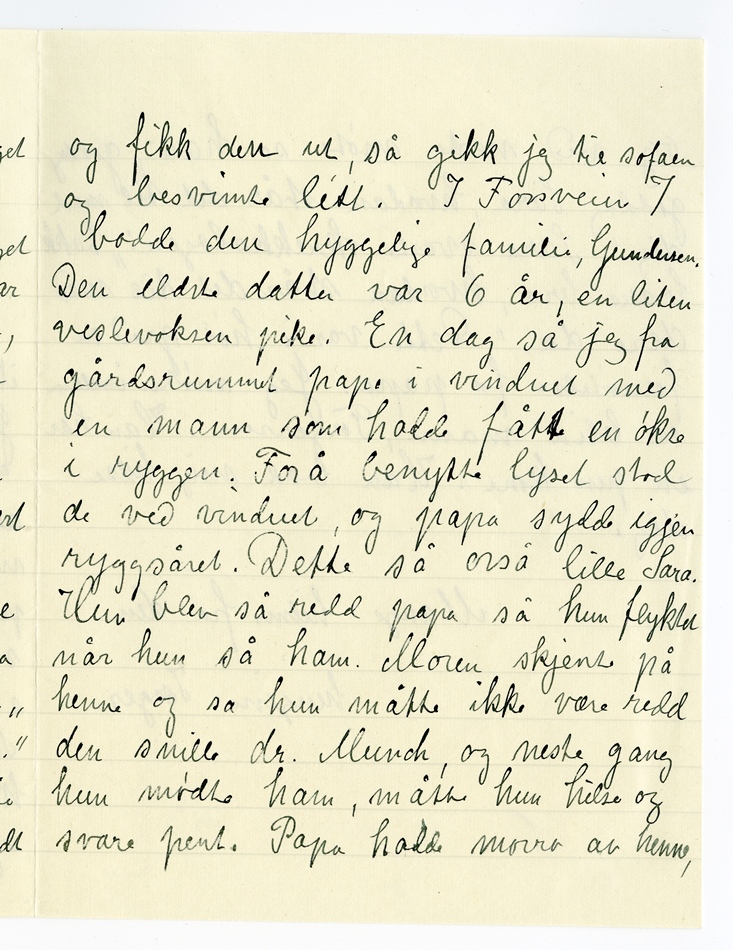 og fikk den ut, så gikk jeg til sofaen
og besvimte litt. I Forsvein 7
bodde den hyggelige familie, Gundersen.
Den eldste datter var 6 år, en liten
veslevoksen pike. En dag så jeg fra
gårdsrummet papa i vinduet med
en mann som hadde fått en økse
i ryggen. Forå benytte lyset stod
de ved vinduet, og papa sydde igjen
ryggsåret. Dette så også lille Sara.
Hun blev så redd papa så hun flyktet
når hun så ham. Moren skjente på
henne og sa hun måtte ikke være redd
den snille dr. Munch, og neste gang
hun mødte ham, måtte hun hilse og
svare pent. Papa hadde morro av henne,